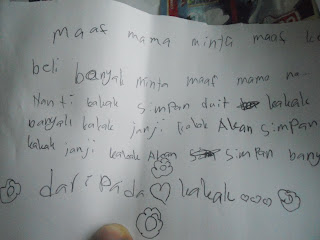 maaf mama minta maaf ka
beli banyak minta maaf mama na
Nanti kakak simpan duit kakak
banyak kakak janji kakak Akan simpan
kakak janji kakak Akan simpan bany
daripada kakak